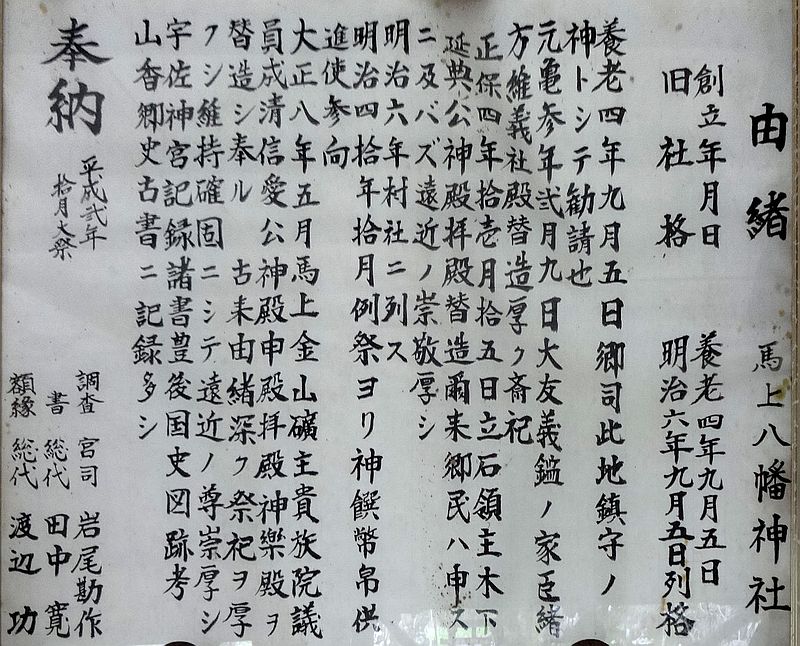 由緒 馬上八幡神社
創立年月日 養老四年九月五日
旧社格 明治六年九月五日列格
養老四年九月五日郷司此地鎮守ノ
神トシテ勧請也
元亀参年弐月九日大友義鑑ノ家臣緒
方維義社殿替造厚ク斎祀
正保四年拾壱月拾五日立石領主木下
延典公神殿拝殿替造爾来郷民ハ申ス
ニ及バズ遠近ノ崇敬厚シ
明治六年村社ニ列ス
明治四拾年拾月例祭ヨリ神饌幣帛供
進使参向
大正八年五月馬上金山礦主貴族院議
員成清信愛公神殿申殿拝殿神樂殿ヲ
替造シ奉ル 古来由緒深ク祭祀ヲ厚
クシ維持確固ニシテ遠近ノ尊崇厚シ
宇佐神宮記録諸書豊後国史図跡考
山香郷史古書ニ記録多シ
奉納 平成弐年
拾月大祭
調査 宮司 岩尾勘作
書 総代 田中寛
額縁 総代 渡辺功